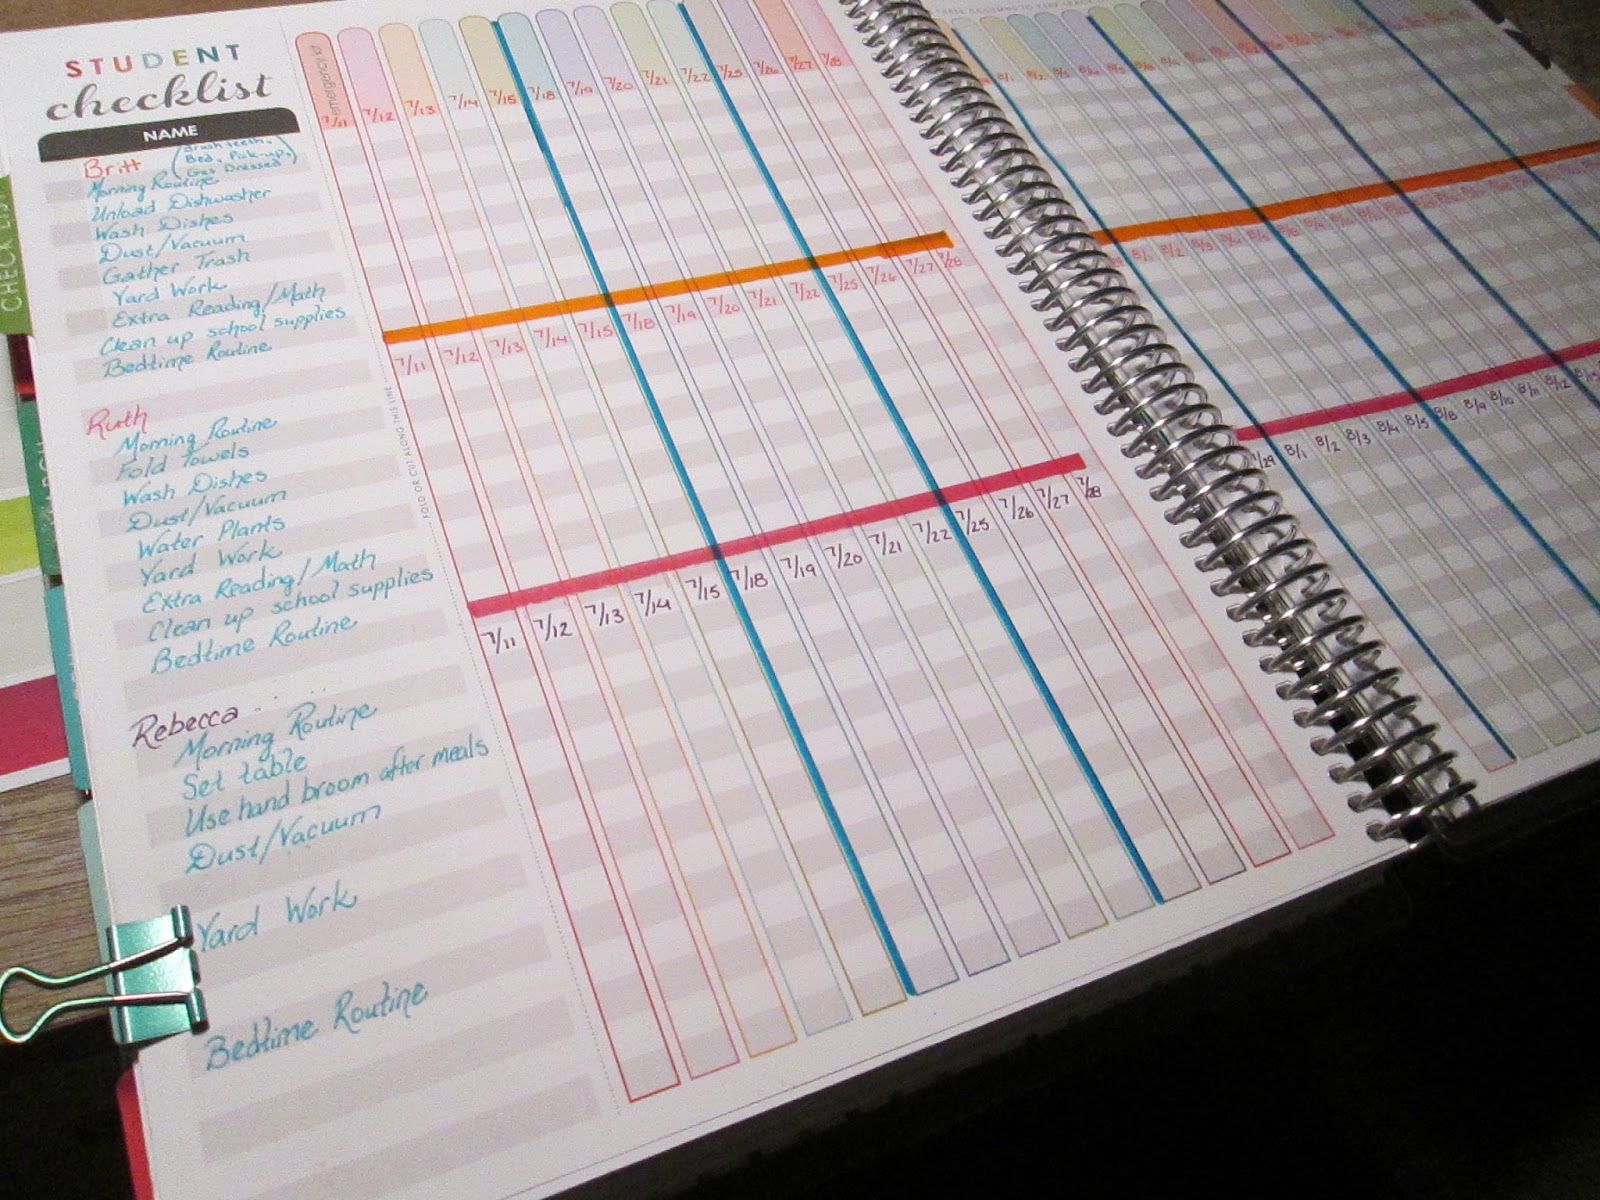 STUDENT
checklist
NAME
emergency id
7/11 7/12 7/13 7/14 7/15 7/18 7/19 7/20 7/21 7/22 7/25 7/26 7/27 7/28
Britt (Brush teeth, Bed, Pick-up, Get Dressed)
Morning Routine
Unload Dishwasher
Wash Dishes
Dust/Vacuum
Gather Trash
Yard Work
Extra Reading/Math
Clean up school supplies
Bedtime Routine
7/11 7/12 7/13 7/14 7/15 7/18 7/19 7/20 7/21 7/22 7/25 7/26 7/27 7/28
Ruth
Morning Routine
Fold Towels
Wash Dishes
Dust/Vacuum
Water Plants
Yard Work
Extra Reading/Math
Clean up school supplies
Bedtime Routine
7/11 7/12 7/13 7/14 7/15 7/18 7/19 7/20 7/21 7/22 7/25 7/26 7/27 7/28
Rebecca
Morning Routine
Set table
Use hand broom after meals
Dust/Vacuum
Yard Work
Bedtime Routine
FOLD OR CUT ALONG THIS LINE
CHECK LIST
8/1 8/2 8/3
7/29 8/1 8/2 8/3 8/4 8/5 8/8 8/9 8/10 8/11 8/12 8/15